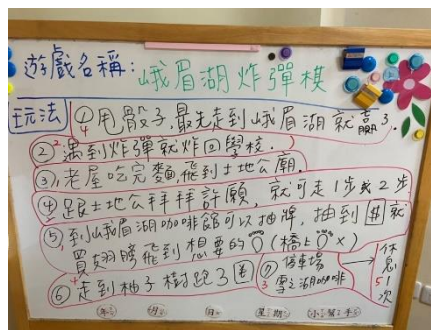 遊戲名稱:峨眉湖炸彈棋
玩法
①甩骰子,最先走到峨眉湖就贏了
②遇到炸彈就炸回學校.
③老屋吃完麵,飛到土地公廟.
④跟土地公拜拜許願,就可走1步或2步
⑤到峨眉湖咖啡館可以抽牌,抽到 就
買翅膀飛到想要的 (橋上 X)
⑥走到柚子樹跑3
⑦停車場
雪之湖咖啡
休息1次
年 月 日 星期 小幫手